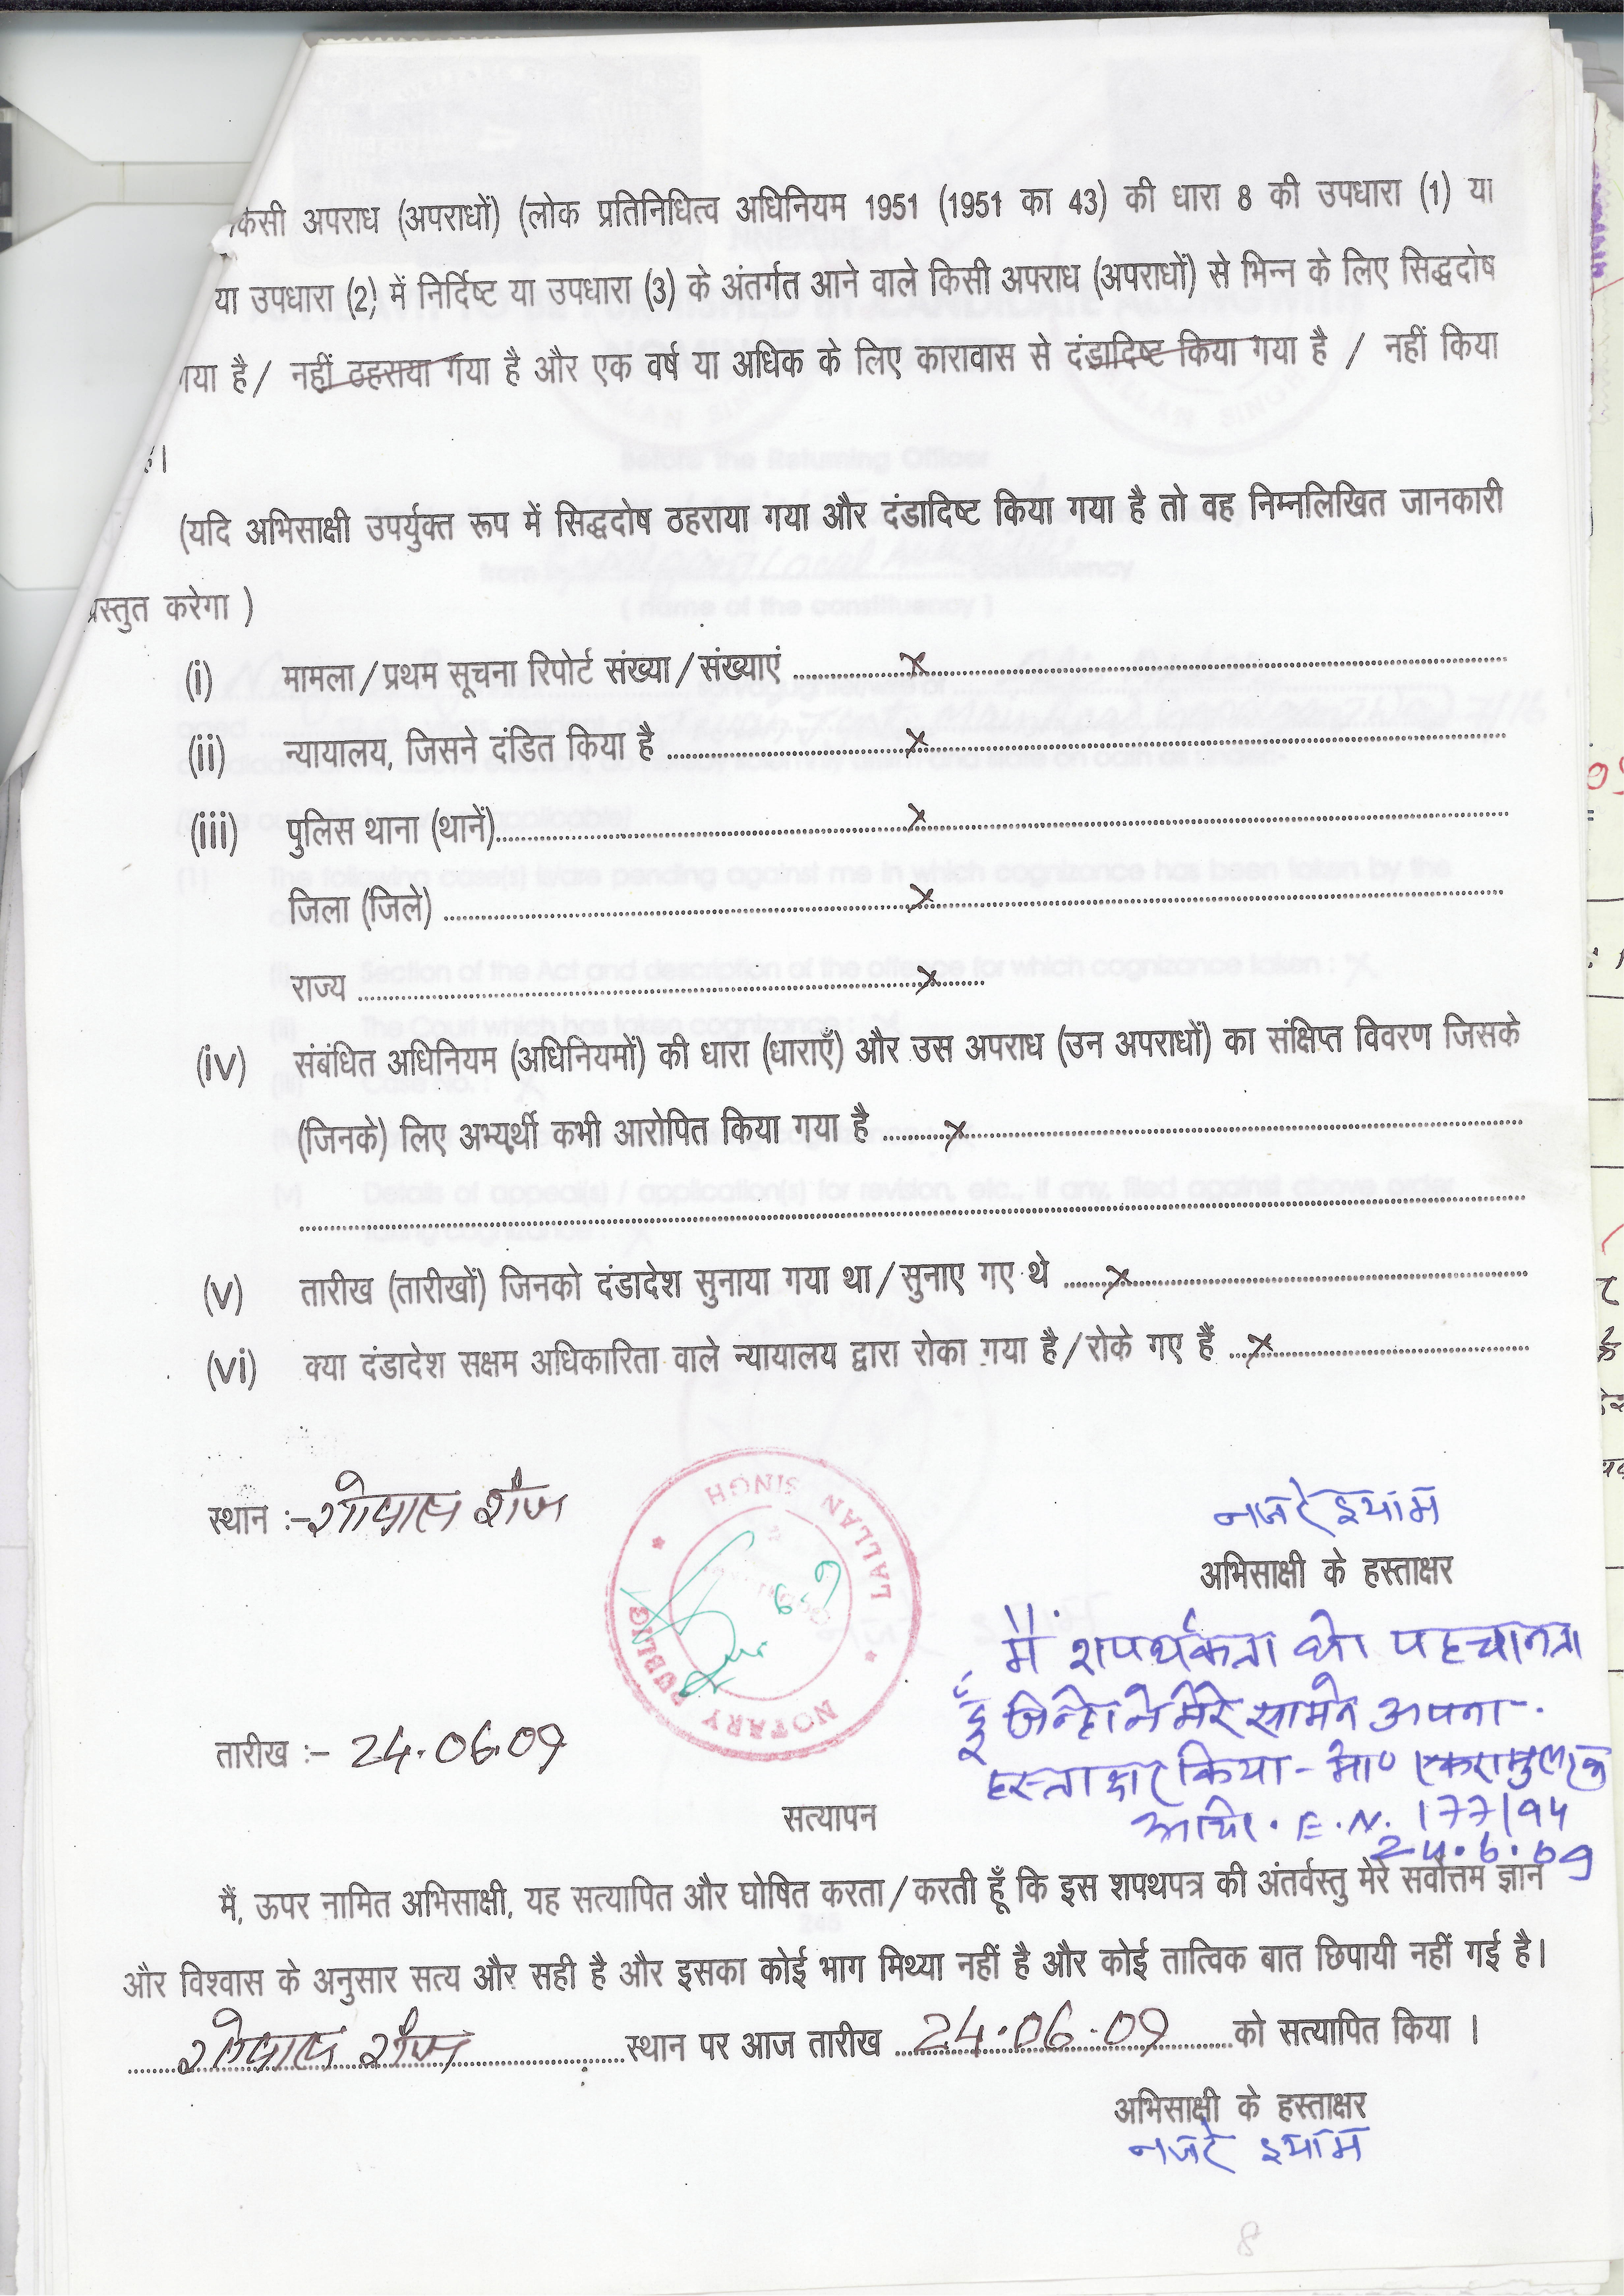 किसी अपराध (अपराधों) (लोक प्रतिनिधित्व अधिनियम 1951 (1951 का 43) की धारा 8 की उपधारा (1) या
या उपधारा (2) में निर्दिष्ट या उपधारा (3) के अंतर्गत आने वाले किसी अपराध (अपराधों) से भिन्न के लिए सिद्धदोष
गया है / नहीं ठहराया गया है और एक वर्ष या अधिक के लिए कारावास से दंडादिष्ट किया गया है / नहीं किया
है।
(यदि अभिसाक्षी उपर्युक्त रूप में सिद्धदोष ठहराया गया और दंडादिष्ट किया गया है तो वह निम्नलिखित जानकारी
प्रस्तुत करेगा )
(i) मामला / प्रथम सूचना रिपोर्ट संख्या / संख्याएं ............ x ............
(ii) न्यायालय, जिसने दंडित किया है ............ x ............
(iii) पुलिस थाना (थानें)............ x ............
जिला (जिले) ............ x ............
राज्य ............ x ............
(iv) संबंधित अधिनियम (अधिनियमों) की धारा (धाराएँ) और उस अपराध (उन अपराधों) का संक्षिप्त विवरण जिसके
(जिनके) लिए अभ्यर्थी कभी आरोपित किया गया है ............ x ............
(v) तारीख (तारीखों) जिनको दंडादेश सुनाया गया था / सुनाए गए थे ............ x ............
(vi) क्या दंडादेश सक्षम अधिकारिता वाले न्यायालय द्वारा रोका गया है / रोके गए हैं ............ x ............
स्थान :- गोपाल गंज
LALLAN SINGH
NOTARY PUBLIC
नजरे इमाम
अभिसाक्षी के हस्ताक्षर
मैं शपथकर्ता को पहचानता
हूँ जिन्होंने मेरे सामने अपना
हस्ताक्षर किया - मो०
E.N. 177/94
24.6.09
तारीख :- 24.06.09
सत्यापन
मैं, ऊपर नामित अभिसाक्षी, यह सत्यापित और घोषित करता / करती हूँ कि इस शपथपत्र की अंतर्वस्तु मेरे सर्वोत्तम ज्ञान
और विश्वास के अनुसार सत्य और सही है और इसका कोई भाग मिथ्या नहीं है और कोई तात्विक बात छिपायी नहीं गई है।
गोपाल गंज ............ स्थान पर आज तारीख 24.06.09 को सत्यापित किया ।
अभिसाक्षी के हस्ताक्षर
नजरे इमाम
8